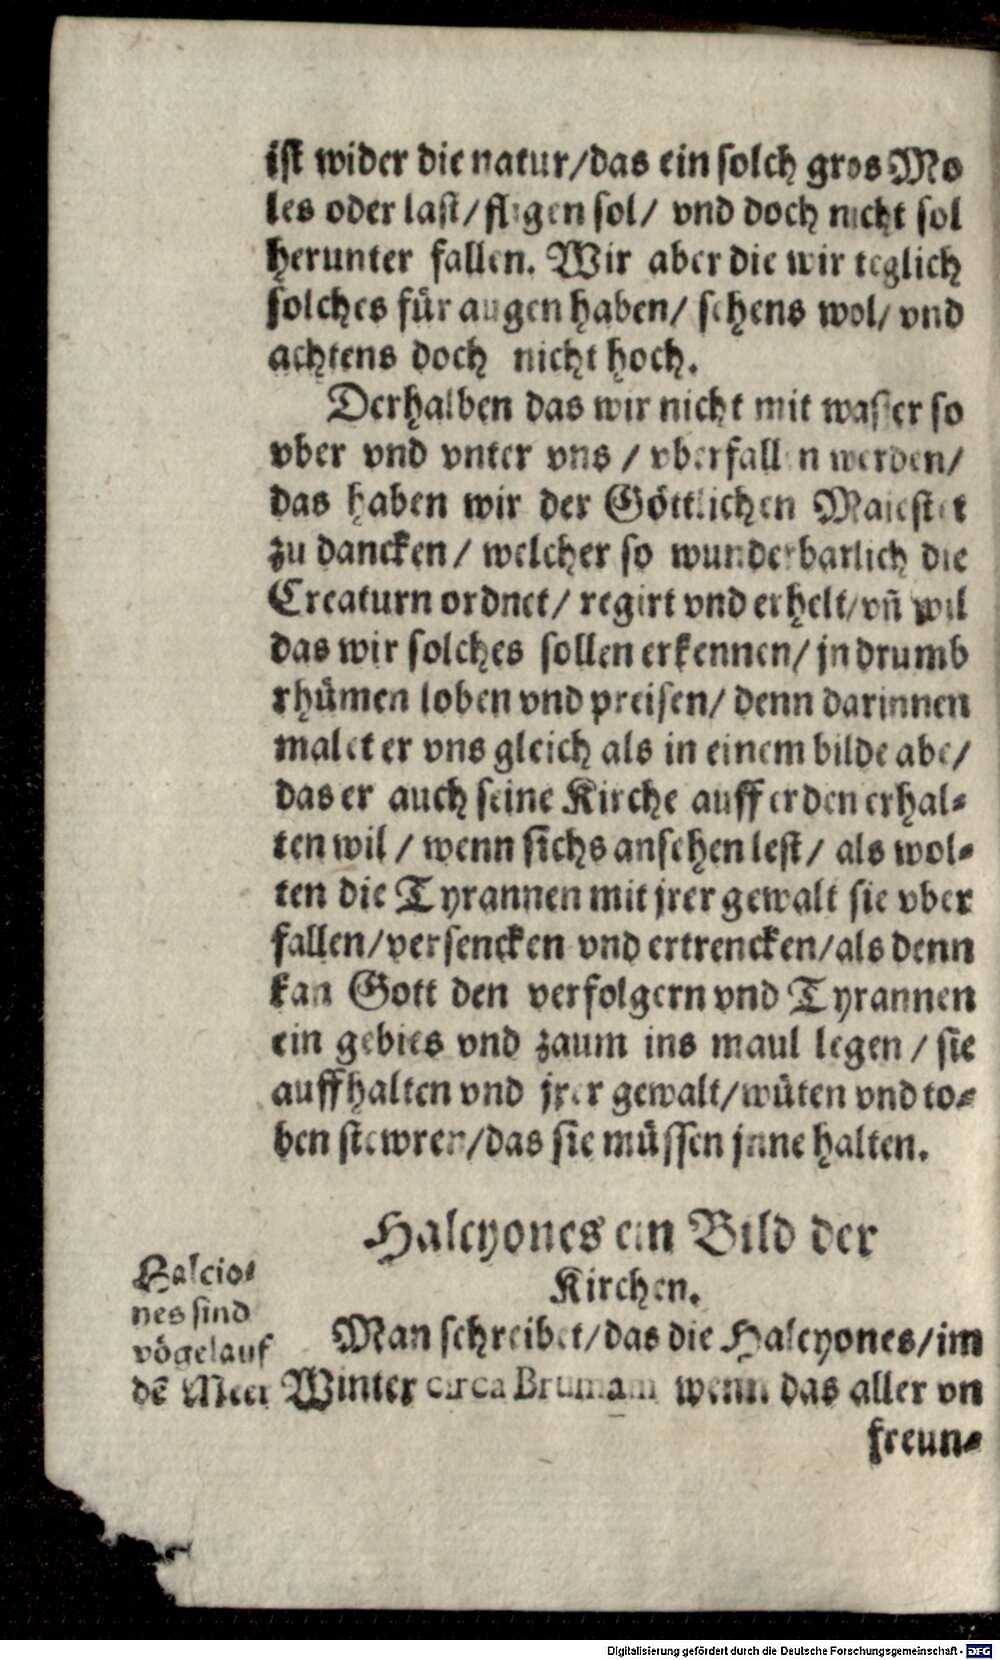 ist wider die natur/das ein solch gros Mo
les oder last/fligen sol/ vnd doch nicht sol
herunter fallen. Wir aber die wir teglich
solches für augen haben/ sehens wol/ vnd
achtens doch nicht hoch.
Derhalben das wir nicht mit wasser so
vber vnd vnter vns / vberfallen werden/
das haben wir der Göttlichen Maiestet
zu dancken/ welcher so wunderbarlich die
Creaturn ordnet/ regirt vnd erhelt/vñ wil
das wir solches sollen erkennen/ jn drumb
rhümen loben vnd preisen/ denn darinnen
malet er vns gleich als in einem bilde abe/
das er auch seine Kirche auff erden erhal⸗
ten wil / wenn sichs ansehen lest/ als wol⸗
ten die Tyrannen mit jrer gewalt sie vber
fallen/versencken vnd ertrencken/als denn
kan Gott den verfolgern vnd Tyrannen
ein gebies vnd zaum ins maul legen / sie
auffhalten vnd jrer gewalt/wüten vnd to⸗
ben stewren/das sie müssen jnne halten.
Halcyones ein Bild der
Kirchen.
Halcio⸗
nes sind
vögel auf
dē Meer
Man schreibet/das die Halcyones/im
Winter circa Brumam wenn das aller vn
freun⸗
Digitalisierung gefördert durch die Deutsche Forschungsgemeinschaft - DFG